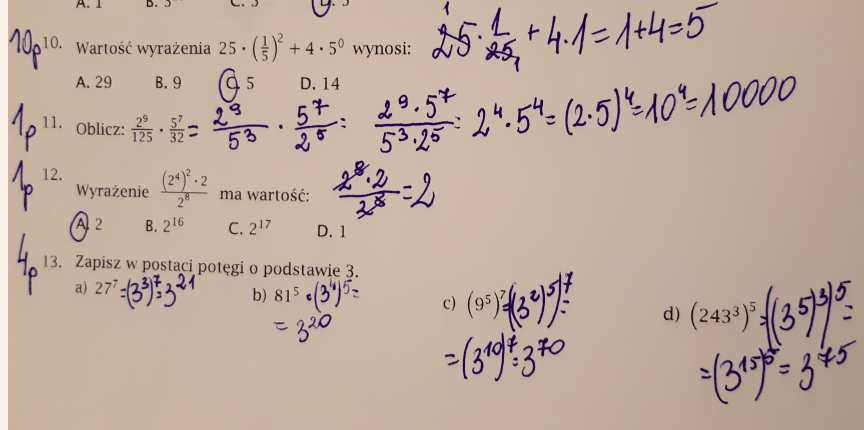 A. 1 B. 3 C. 5 D. 5
10p 10. Wartość wyrażenia 25 · (1/5)² + 4 · 5⁰ wynosi: 25 · 1/25 + 4·1 = 1+4=5
A. 29 B. 9 C. 5 D. 14
1p 11. Oblicz: 2⁹/125 · 5⁷/32 = 2⁹/5³ · 5⁷/2⁵ = 2⁹·5⁷/5³·2⁵ = 2⁴·5⁴=(2·5)⁴=10⁴=10000
1p 12. Wyrażenie (2⁴)²·2/2⁸ ma wartość: 2⁸·2/2⁸=2
A. 2 B. 2¹⁶ C. 2¹⁷ D. 1
4p 13. Zapisz w postaci potęgi o podstawie 3.
a) 27⁷=(3³)⁷=3²¹ b) 81⁵=(3⁴)⁵= c) (9⁵)⁷=((3²)⁵)⁷= d) (243³)⁵=((3⁵)³)⁵=
= 3²⁰ =(3¹⁰)⁷=3⁷⁰ =(3¹⁵)⁵=3⁷⁵